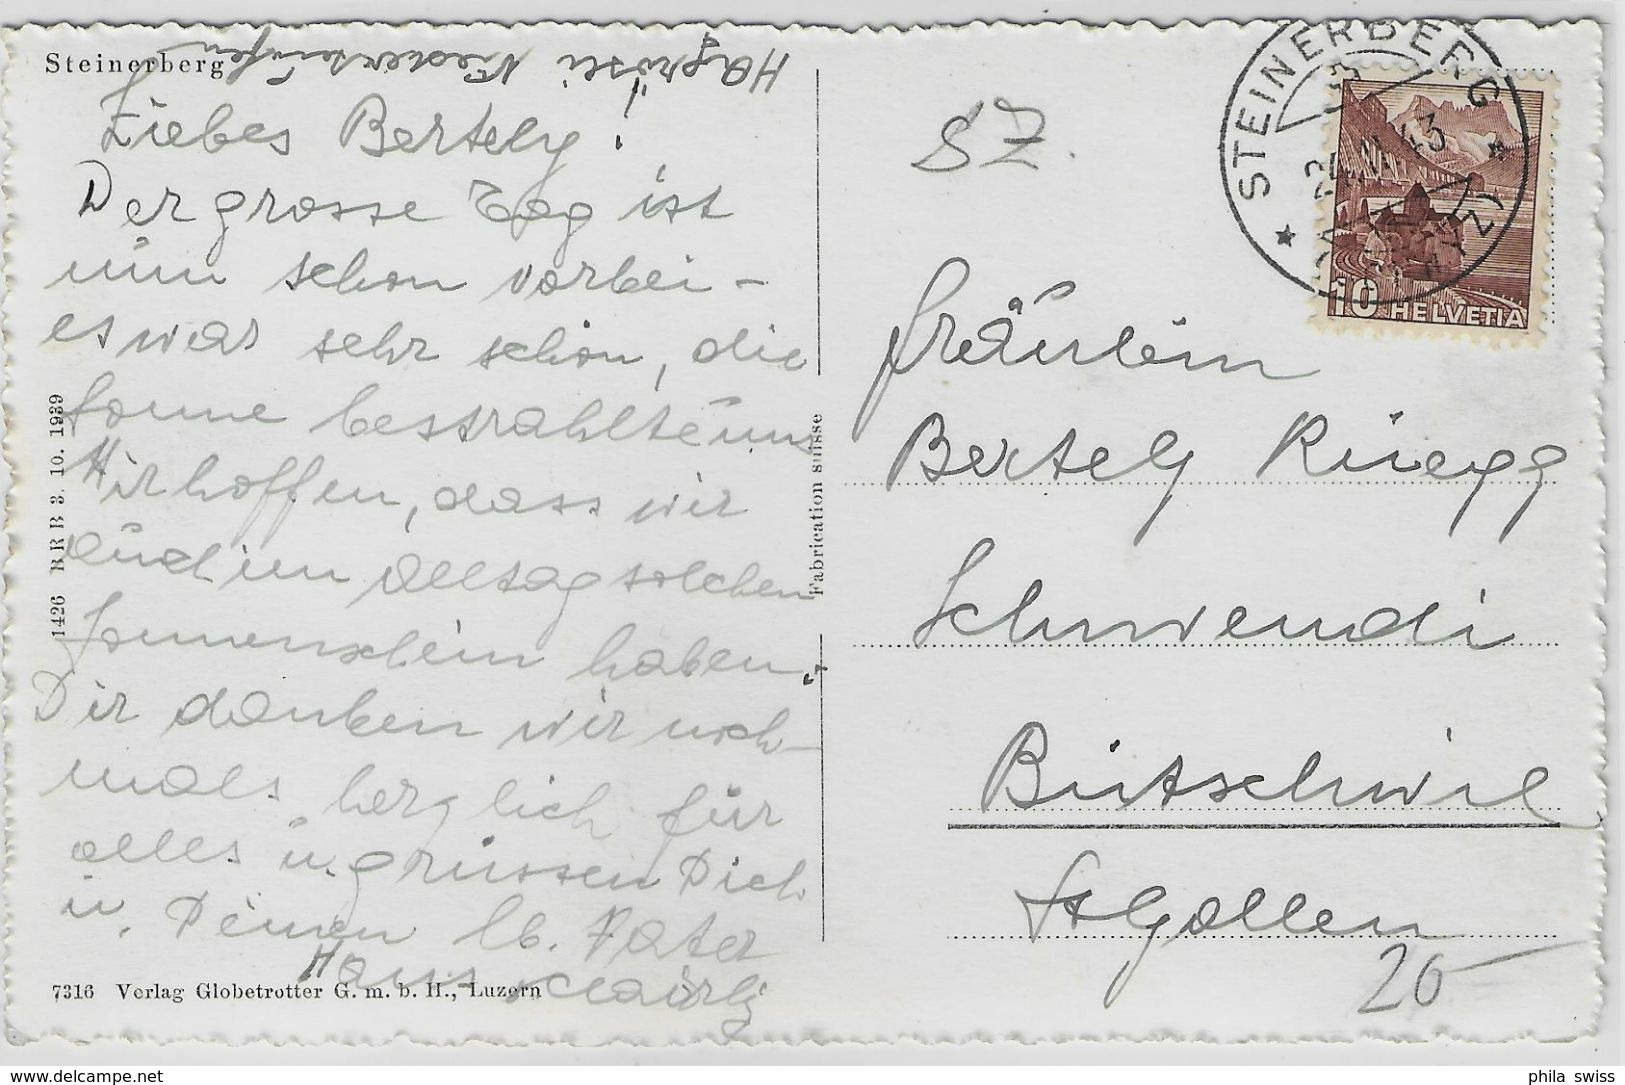 Steinerberg
Liebes Bertely!
Der grosse Tag ist
nun schon vorbei –
es war sehr schön, die
Sonne bestrahlte uns
Wir hoffen, dass wir
auch im Alltag solchen
Sonnenschein haben.
Dir danken wir noch-
mals herzlich für
alles u. grüssen Dich
u. Deinen lb. Vater
Hans
7316 Verlag Globetrotter G. m. b. H., Luzern
1426 B R B 3. 10. 1939
Fabrication suisse
SZ.
STEINERBERG
43
(SCHWYZ)
10 HELVETIA
Fräulein
Bertely Rüegg
Schwendi
Bütschwil
St Gallen
20 –
phila swiss